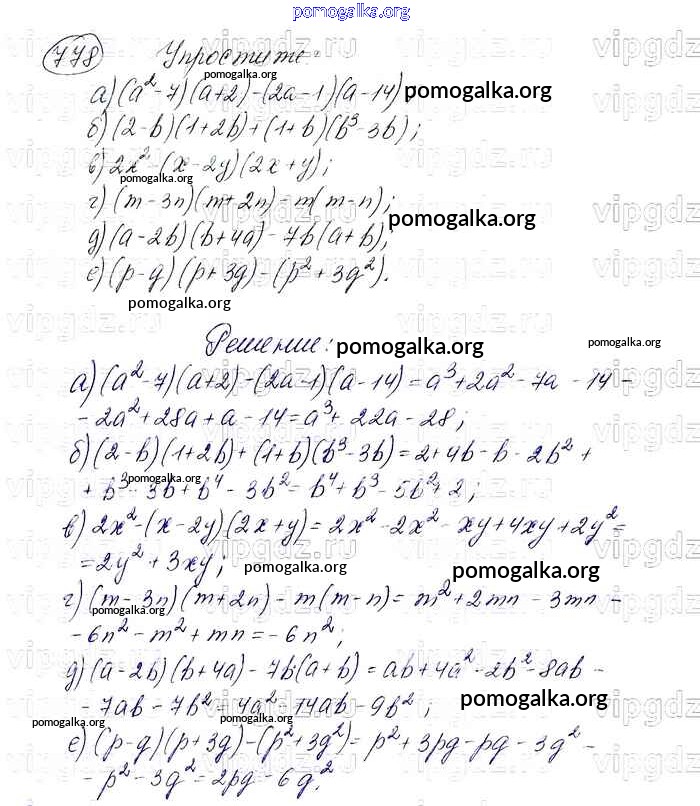 pomogalka.org
778 Упростите:
pomogalka.org
а) (a² - 7)(a + 2) - (2a - 1)(a - 14);
pomogalka.org
б) (2 - b)(1 + 2b) + (1 + b)(b³ - 3b);
в) 2x² - (x - 2y)(2x + y);
pomogalka.org
г) (m - 3n)(m + 2n) - m(m - n);
pomogalka.org
д) (a - 2b)(b + 4a) - 7b(a + b);
е) (p - q)(p + 3q) - (p² + 3q²).
pomogalka.org
Решение:
pomogalka.org
pomogalka.org
а) (a² - 7)(a + 2) - (2a - 1)(a - 14) = a³ + 2a² - 7a - 14 -
- 2a² + 28a + a - 14 = a³ + 22a - 28;
б) (2 - b)(1 + 2b) + (1 + b)(b³ - 3b) = 2 + 4b - b - 2b² +
pomogalka.org
+ b³ - 3b + b⁴ - 3b² = b⁴ + b³ - 5b² + 2;
в) 2x² - (x - 2y)(2x + y) = 2x² - 2x² - xy + 4xy + 2y² =
= 2y² + 3xy;
pomogalka.org
pomogalka.org
г) (m - 3n)(m + 2n) - m(m - n) = m² + 2mn - 3mn -
pomogalka.org
- 6n² - m² + mn = - 6n²;
д) (a - 2b)(b + 4a) - 7b(a + b) = ab + 4a² - 2b² - 8ab -
- 7ab - 7b² = 4a² - 14ab - 9b²;
pomogalka.org
pomogalka.org
pomogalka.org
е) (p - q)(p + 3q) - (p² + 3q²) = p² + 3pq - pq - 3q² -
- p² - 3q² = 2pq - 6q².
vipgdz.ru